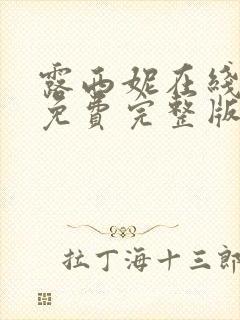 露西妮在綫
免費完整版
拉丁海十三郎